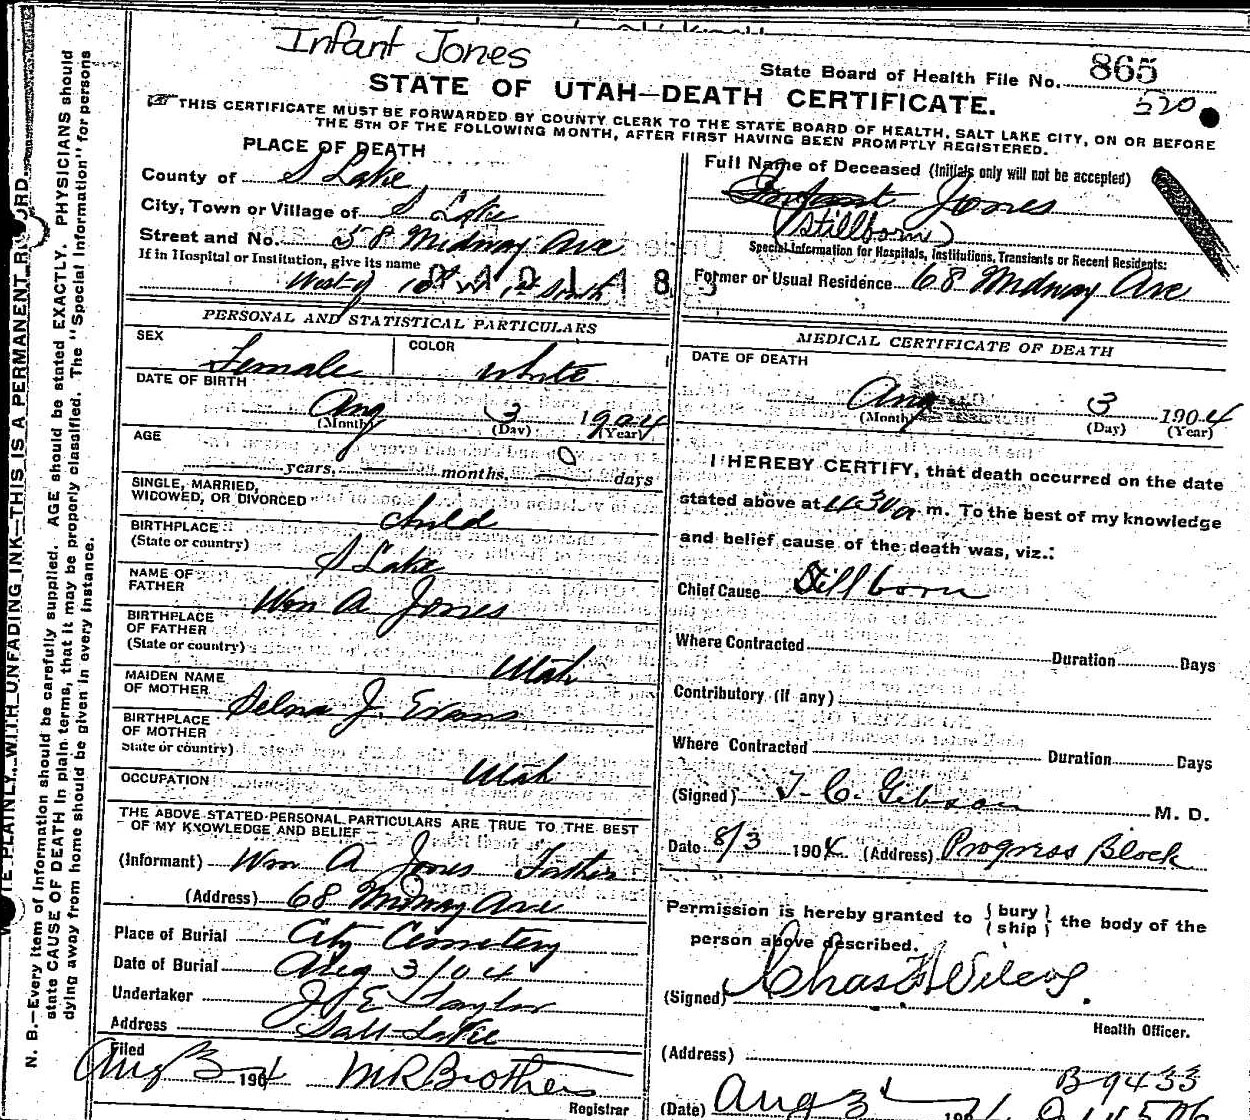 Infant Jones
State Board of Health File No. 865
520
STATE OF UTAH—DEATH CERTIFICATE.
THIS CERTIFICATE MUST BE FORWARDED BY COUNTY CLERK TO THE STATE BOARD OF HEALTH, SALT LAKE CITY, ON OR BEFORE
THE 5TH OF THE FOLLOWING MONTH, AFTER FIRST HAVING BEEN PROMPTLY REGISTERED.
PLACE OF DEATH
County of S Lake
City, Town or Village of S Lake
Street and No. 58 Midway Ave
If in Hospital or Institution, give its name
West of
Full Name of Deceased (Initials only will not be accepted)
Infant Jones
(Stillborn)
Special Information for Hospitals, Institutions, Transients or Recent Residents:
Former or Usual Residence 68 Midway Ave
PERSONAL AND STATISTICAL PARTICULARS
SEX Female COLOR White
DATE OF BIRTH
Aug 3 1904
(Month) (Day) (Year)
AGE
years, months, 0 days
SINGLE, MARRIED,
WIDOWED, OR DIVORCED Child
BIRTHPLACE
(State or country) S Lake
NAME OF
FATHER Wm A Jones
BIRTHPLACE
OF FATHER
(State or country) Utah
MAIDEN NAME
OF MOTHER Selma J. Evans
BIRTHPLACE
OF MOTHER
State or country) Utah
OCCUPATION
THE ABOVE STATED PERSONAL PARTICULARS ARE TRUE TO THE BEST
OF MY KNOWLEDGE AND BELIEF
(Informant) Wm A Jones Father
(Address) 68 Midway Ave
Place of Burial City Cemetery
Date of Burial Aug 3/04
Undertaker J E Taylor
Address Salt Lake
Filed
Aug 3 1904 M R Brothers
Registrar
MEDICAL CERTIFICATE OF DEATH
DATE OF DEATH
Aug 3 1904
(Month) (Day) (Year)
I HEREBY CERTIFY, that death occurred on the date
stated above at 430 a m. To the best of my knowledge
and belief cause of the death was, viz.:
Chief Cause Stillborn
Where Contracted Duration Days
Contributory (if any)
Where Contracted Duration Days
(Signed) T. C. Gibson M. D.
Date 8/3 1904 (Address) Progress Block
Permission is hereby granted to {bury
ship} the body of the
person above described.
(Signed)
Health Officer.
(Address)
B 9433
(Date) Aug 3
N. B.—Every item of information should be carefully supplied. AGE should be stated EXACTLY. PHYSICIANS should
state CAUSE OF DEATH in plain terms, that it may be properly classified. The "Special Information" for persons
dying away from home should be given in every instance.
PLAINLY, WITH UNFADING INK—THIS IS A PERMANENT RECORD.